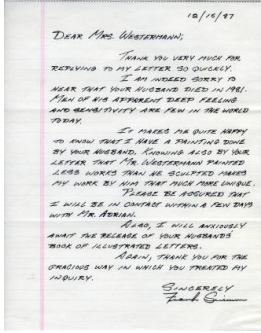 12/15/87
DEAR MRS. WESTERMANN;
THANK YOU VERY MUCH FOR
REPLYING TO MY LETTER SO QUICKLY.
I AM INDEED SORRY TO
HEAR THAT YOUR HUSBAND DIED IN 1981.
MEN OF HIS APPARENT DEEP FEELING
AND SENSITIVITY ARE FEW IN THE WORLD
TODAY.
IT MAKES ME QUITE HAPPY
TO KNOW THAT I HAVE A PAINTING DONE
BY YOUR HUSBAND. KNOWING ALSO BY YOUR
LETTER THAT MR. WESTERMANN PAINTED
LESS WORKS THAN HE SCULPTED MAKES
MY WORK BY HIM THAT MUCH MORE UNIQUE.
PLEASE BE ASSURED THAT
I WILL BE IN CONTACT WITHIN A FEW DAYS
WITH MR. ADRIAN.
ALSO, I WILL ANXIOUSLY
AWAIT THE RELEASE OF YOUR HUSBANDS
BOOK OF ILLUSTRATED LETTERS.
AGAIN, THANK YOU FOR THE
GRACIOUS WAY IN WHICH YOU TREATED MY
INQUIRY.
SINCERELY
Frank